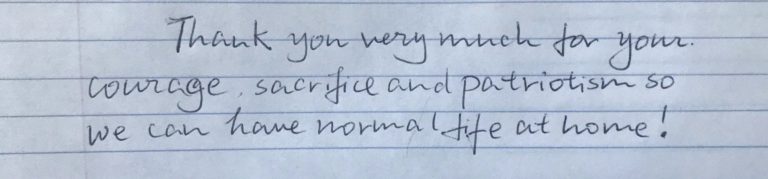 Thank you very much for your
courage, sacrifice and patriotism so
we can have normal life at home!